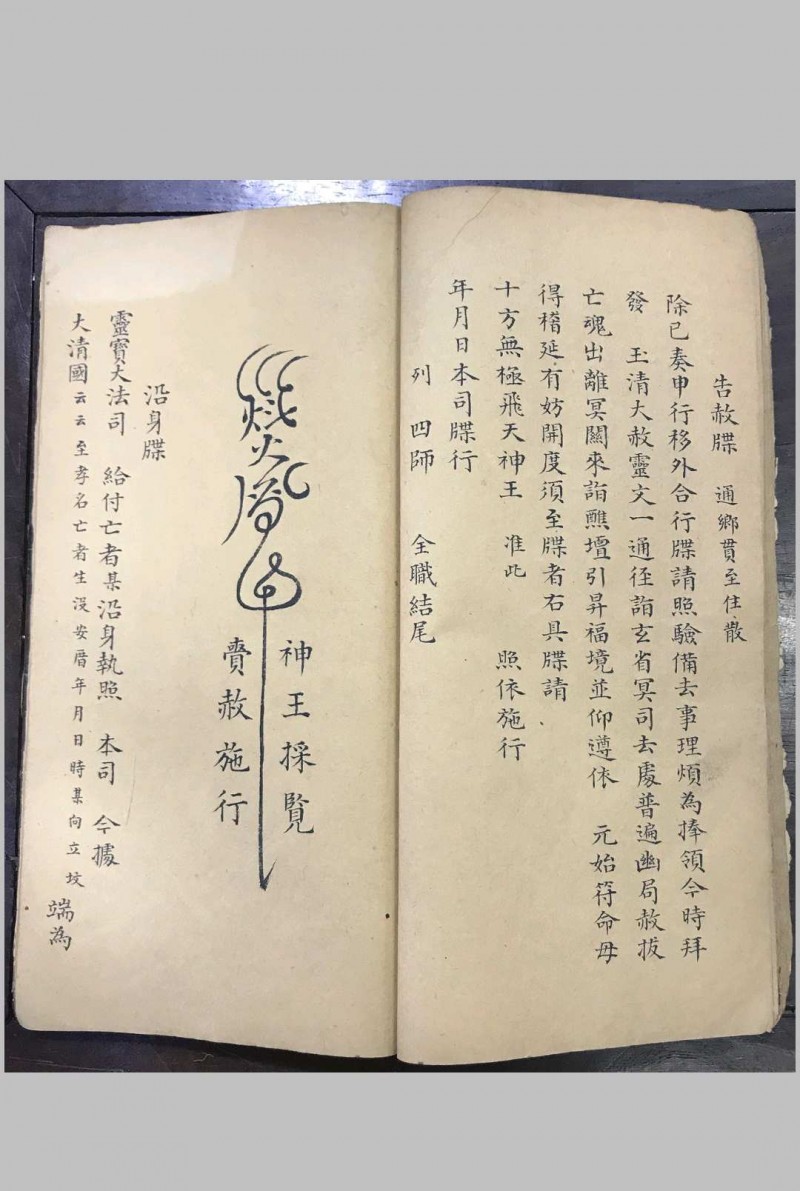 告赦牒　通鄉貫至住散
除已奏申行移外合行牒請照驗備去事理煩為捧領今時拜
發　玉清大赦靈文一通徑詣玄省冥司去處普遍幽局赦拔
亡魂出離冥關來詣醮壇引昇福境並仰遵依　元始符命毋
得稽延有妨開度須至牒者右具牒請
十方無極飛天神王　准此　　照依施行
年月日本司牒行
列　四師　　全職結尾
神王採覽
賫赦施行
沿身牒
靈寶大法司　給付亡者某沿身執照　本司　今據
大清國云云至孝名亡者生沒安厝年月日時某向立坟　端為